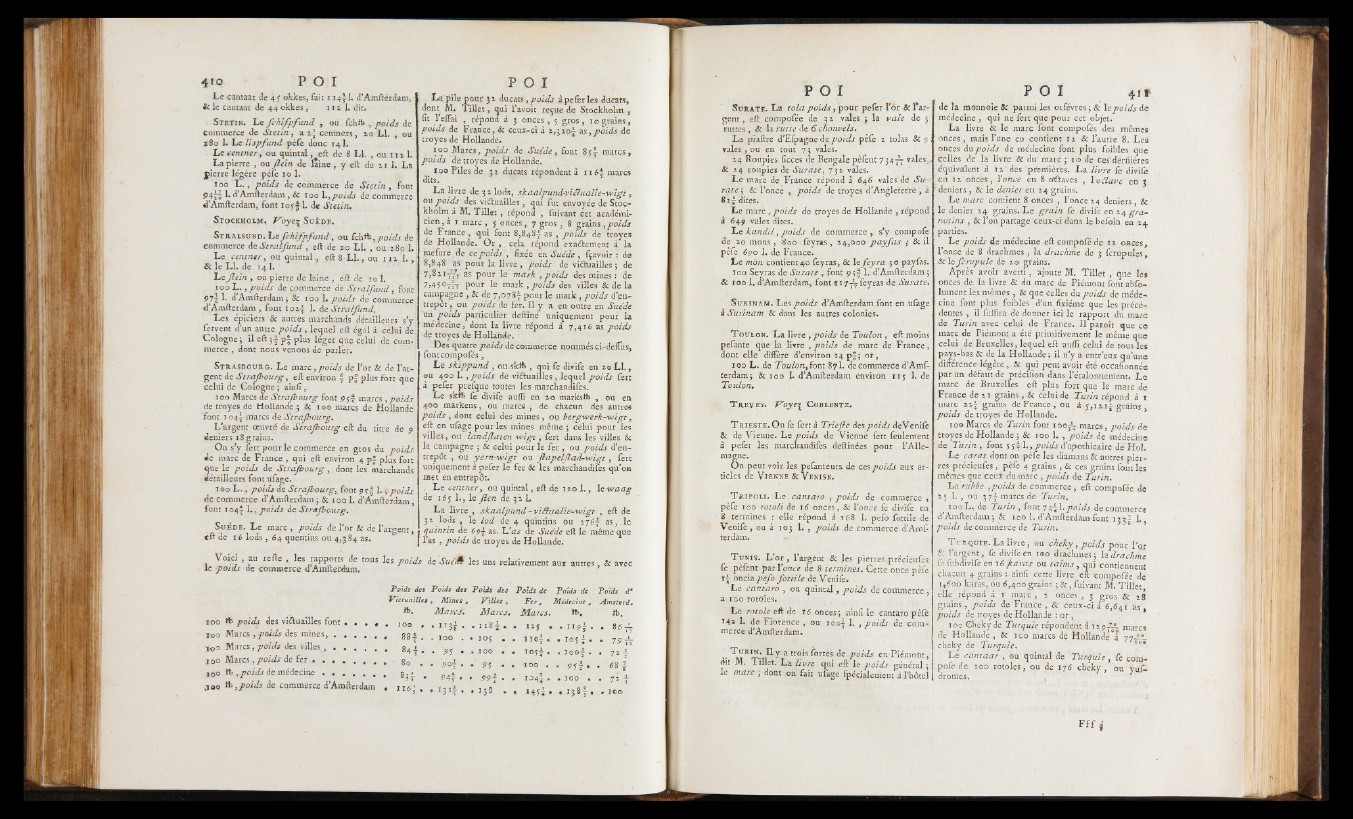 410 POI POI
Le cantaar de 45 okkes, fait 114¾ l. d'Amsterdam,
& le cantaar de 44 okkes, 112 l. dit.
STETIN. Le schifpfund , ou schtb , poids de
commerce de Stetin, a 2½ cenners, 20 Ll. , ou
280 l. Le lispfund pèse donc 14 l.
Le centner, ou quintal, est de 8 Ll. , ou 112 l.
La pierre , ou stein de laine, y est de 21 l. La
pierre légère pèse 10 l.
100 L., poids de commerce de Stetin , font
l. d'Amsterdam, & 100 l., poids de commerce
d'Amsterdam, font l. de Stetin.
STOCKHOLM. Voyez SUÈDE.
STRALSUND. Le schifpfund, ou schtb, poids de
commerce de Stralsund , est de 20 Ll. , ou 280 l.
Le centner, ou quintal, est 8 Ll., ou 112 l.,
& le Ll. de 14 l.
Le stein, ou pierre de laine , est de 10 l.
100 L., poids de commerce de Stralsund, font
l. d'Amsterdam; & 100 l. poids de commerce
d'Amsterdam , font l. de Stralsund.
Les épiciers & autres marchands détailleurs s'y
servent d'un autre poids, lequel est égal à celui de
Cologne; il est plus léger que celui de com-
merce , dont nous venons de parler.
STRASBOURG. Le marc, poids de l'or & de l'ar-
gent de Strasbourg, est environ plus fort que
celui de Cologne; ainsi,
100 Marcs de Strasbourg font marcs, poids
de troyes de Hollande; & 100 marcs de Hollande
font marcs de Strasbourg.
L'argent œuvré de Strasbourg est du titre de 9
deniers 18 grains.
On s'y sert pour le commerce en gros du poids
de marc de France , qui est environ 4 p° plus fort
que le poids de Strasbourg , dont les marchands
détailleurs font usage.
100 L., poids de Strasbourg, font l., poids
de commerce d'Amsterdam; & 100 l. d'Amsterdam,
font l., poids de Strasbourg.
SUÈDE. Le marc, poids de l'or & de l'argent,
est de 16 lods, 64 quentins ou 4,384 as.
La pile pour 32 ducats, poids à peser les ducats,
dent M. Tillet, qui l'avoit reçue de Stockholm ,
fit l'essai , répond à 3 onces, 5 gros, 10 grains,
poids de France, & ceux-ci à as, poids de
troyes de Hollande.
100 Marcs, poids de Suède, font marcs,
poids de troyes de Hollande.
100 Piles de 32 ducats répondent à marcs
dits.
La livre de 32 lods, skaalpund-victualie-wigt,
ou poids des victuailles, qui fut envoyée de Stoc-
kholm à M. Tillet , répond , suivant cet académi-
cien, à 1 marc, 5 onces, 7 gros, 8 grains, poids
de France, qui font as , poids de troyes
de Hollande. Or , cela répond exactement à la
mesure de ce poids , fixée en Suède , sçavoir : de
8,848 as pour la livre, poids de victuailles; de
as pour le mark , poids des mines : de
pour le mark, poids des villes & de la
campagne, & de pour le mark, poids d'en-
trepôt, ou poids de fer. Il y a en outre en Suède
un poids particulier destiné uniquement pour la
médecine, dont la livre répond à 7,416 as poids
de troyes de Hollande.
Des quatre poids de commerce nommés ci-dessus,
sont composés,
Le skippund , ou sktb , qui se divise en 20 Ll.,
ou 400 l., poids de victuailles, lequel poids sert
à peser presque toutes les marchandises.
Le sktb se divise aussi en 20 marktb , ou en
400 markens, ou marcs , de chacun des autres
poids, dont celui des mines, ou bergwerk-wigt,
est en usage pour les mines même; celui pour les
villes, ou landstaten wigt , sert dans les villes &
la campagne; & celui pour le fer, ou poids d'en-
trepôt , ou yern-wigt ou stapelstad-wigt , sert
uniquement à peser le fer & les marchandises qu'on
met en entrepôt.
Le centner, ou quintal, est de 120 l., le waag
de 165 l., le sten de 32 l.
La livre , skaalpund-victualie-wigt , est de
32 lods , le lod de 4 quintins ou as, le
quintin de as. L'as de Suède est le même que
l'as , poids de troyes de Hollande.
Voici , au reste , les rapports de tous les poids de Suède les uns relativement aux autres, & avec
le poids de commerce d'Amsterdam.
Poids des Poids des Poids des Poids de Poids de Poids d'
Victuailles, Mines, Villes, Fer, Médecine, Amsterd.
tb. Marcs. Marcs. Marcs. tb. tb.
100 tb poids des victuailles font . . . . 100
100 Marcs, poids des mines, . . . . . .
100 Marcs, poids des villes, . . . . . .
100 Marcs, poids de fer . . . . . . . .
100 tb, poids de médecine . . . . . .
100 tb, poids de commerce d'Amsterdam
POI POI 411
SURATE. La tola poids, pour peser l'or & l'ar-
gent, est composée de 32 vales ; la vale de 3
ruttes , & la rutte de 6 chonvels.
La piastre d'Espagne de poids pèse 2 tolas & 9
vales, ou en tout 73 vales.
24 Roupies siccas de Bengale pèsent vales,
& 24 roupies de Surate, 732 vales.
Le marc de France répond à 646 vales de Su-
rate; & l'once , poids de troyes d'Angleterre, à
dites.
Le marc, poids de troyes de Hollande , répond
à 649 vales dites.
Le kandil, poids de commerce , s'y compose
de 20 mons, 800 seyras, 24,000 paysas ; & il
pèse 690 l. de France.
Le mon contient 40 seyras, & le seyra 30 paysas.
100 Seyras de Surate , font l. d'Amsterdam;
& 100 l. d'Amsterdam, font seyras de Surate.
SURINAM. Les poids d'Amsterdam sont en usage
à Surinam & dans les autres colonies.
TOULON. La livre, poids de Toulon, est moins
pesante que la livre , poids de marc de France,
dont elle diffère d'environ 14 p°; or,
100 L. de Toulon, font 87 l. de commerce d'Ams-
terdam; & 100 l. d'Amsterdam environ 115 l. de
Toulon.
TREVES. Voyez COBLENTZ.
TRIESTE. On se sert à Trieste des poids de Venise
& de Vienne. Le poids de Vienne sert seulement
à peser les marchandises destinées pour l'Alle-
magne.
On peut voir les pesanteurs de ces poids aux ar-
ticles de VIENNE & VENISE.
TRIPOLI. Le cantaro , poids de commerce ,
pèse 100 rotoli de 16 onces, & l'once se divise en
8 termines : elle répond à 168 l. peso sottile de
Venise , ou à 103 l. , poids de commerce d'Ams-
terdam.
TUNIS. L'or, l'argent & les pierres précieuses
se pèsent par l'once de 8 termines. Cette once pèse
oncia peso sottile de Venise.
Le cantaro , ou quintal , poids de commerce,
a 100 rotoles.
Le rotole est de 16 onces; ainsi le cantaro pèse
142 l. de Florence , ou l. , poids de com-
merce d'Amsterdam.
TURIN. Il y a trois sortes de poids en Piémont,
dit M. Tillet. La livre qui est le poids général;
le marc ; dont on fait usage spécialement à l'hôtel
de la monnoie & parmi les orfèvres; & le poids de
médecine, qui ne sert que pour cet objet.
La livre & le marc sont composés des mêmes
onces, mais l'une en contient 12 & l'autre 8. Les
onces du poids de médecine sont plus foibles que
celles de la livre & du marc; 10 de ces dernières
équivalent à 12 des premières. La livre se divise
en 12 onces, l'once en 8 octaves , l'octave en 3
deniers, & le denier en 24 grains.
Le marc contient 8 onces, l'once 24 deniers, &
le denier 24 grains. Le grain se divise en 24 gra-
notins , & l'on partage ceux-ci dans le besoin en 24
parties.
Le poids de médecine est composé de 12 onces,
l'once de 8 drachmes, la drachme de 3 scrupules,
& le scrupule de 20 grains.
Après avoir averti, ajoute M. Tillet , que les
onces de la livre & du marc de Piémont sont abso-
lument les mêmes, & que celles du poids de méde-
cine sont plus foibles d'un sixième que les précé-
dentes , il suffira de donner ici le rapport du marc
de Turin avec celui de France. Il paroît que ce
marc de Piémont a été primitivement le même que
celui de Bruxelles, lequel est aussi celui de tous les
pays-bas & de la Hollande; il n'y a entr'eux qu'une
différence légère, & qui peut avoir été occasionnée
par un défaut de précision dans l'étalonnement. Le
marc de Bruxelles est plus fort que le marc de
France de 21 grains, & celui de Turin répond à 1
marc grains de France, ou à grains ,
poids de troyes de Hollande.
100 Marcs de Turin font marcs, poids de
troyes de Hollande; & 100 l. , poids de médecine
de Turin , font l., poids d'apothicaire de Hol.
Le caras dont on pèse les diamans & autres pier-
res précieuses, pèse 4 grains , & ces grains sont les
mêmes que ceux du marc, poids de Turin.
La rubbe , poids de commerce, est composée de
25 l. , ou marcs de Turin.
100 L. de Turin, font l. poids de commerce
d'Amsterdam; & 100 l. d'Amsterdam font l.,
poids de commerce de Turin.
TURQUIE. La livre, ou cheky, poids pour l'or
& l'argent, se divise en 100 drachmes; la drachme
se subdivise en 16 karas ou taims, qui contiennent
chacun 4 grains : ainsi cette livre est composée de
1,600 karas, ou 6,400 grains; &, suivant M. Tillet,
elle répond à 1 marc, 2 onces , 3 gros & 28
grains , poids de France , & ceux-ci à 6,641 as ,
poids de troyes de Hollande : or ,
100 Cheky de Turquie répondent à marcs
de Hollande, & 100 marcs de Hollande à
cheky de Turquie.
Le cantaar , ou quintal de Turquie, se com-
pose de 100 rotoles, ou de 176 cheky , ou yus-
dromes.
Fff